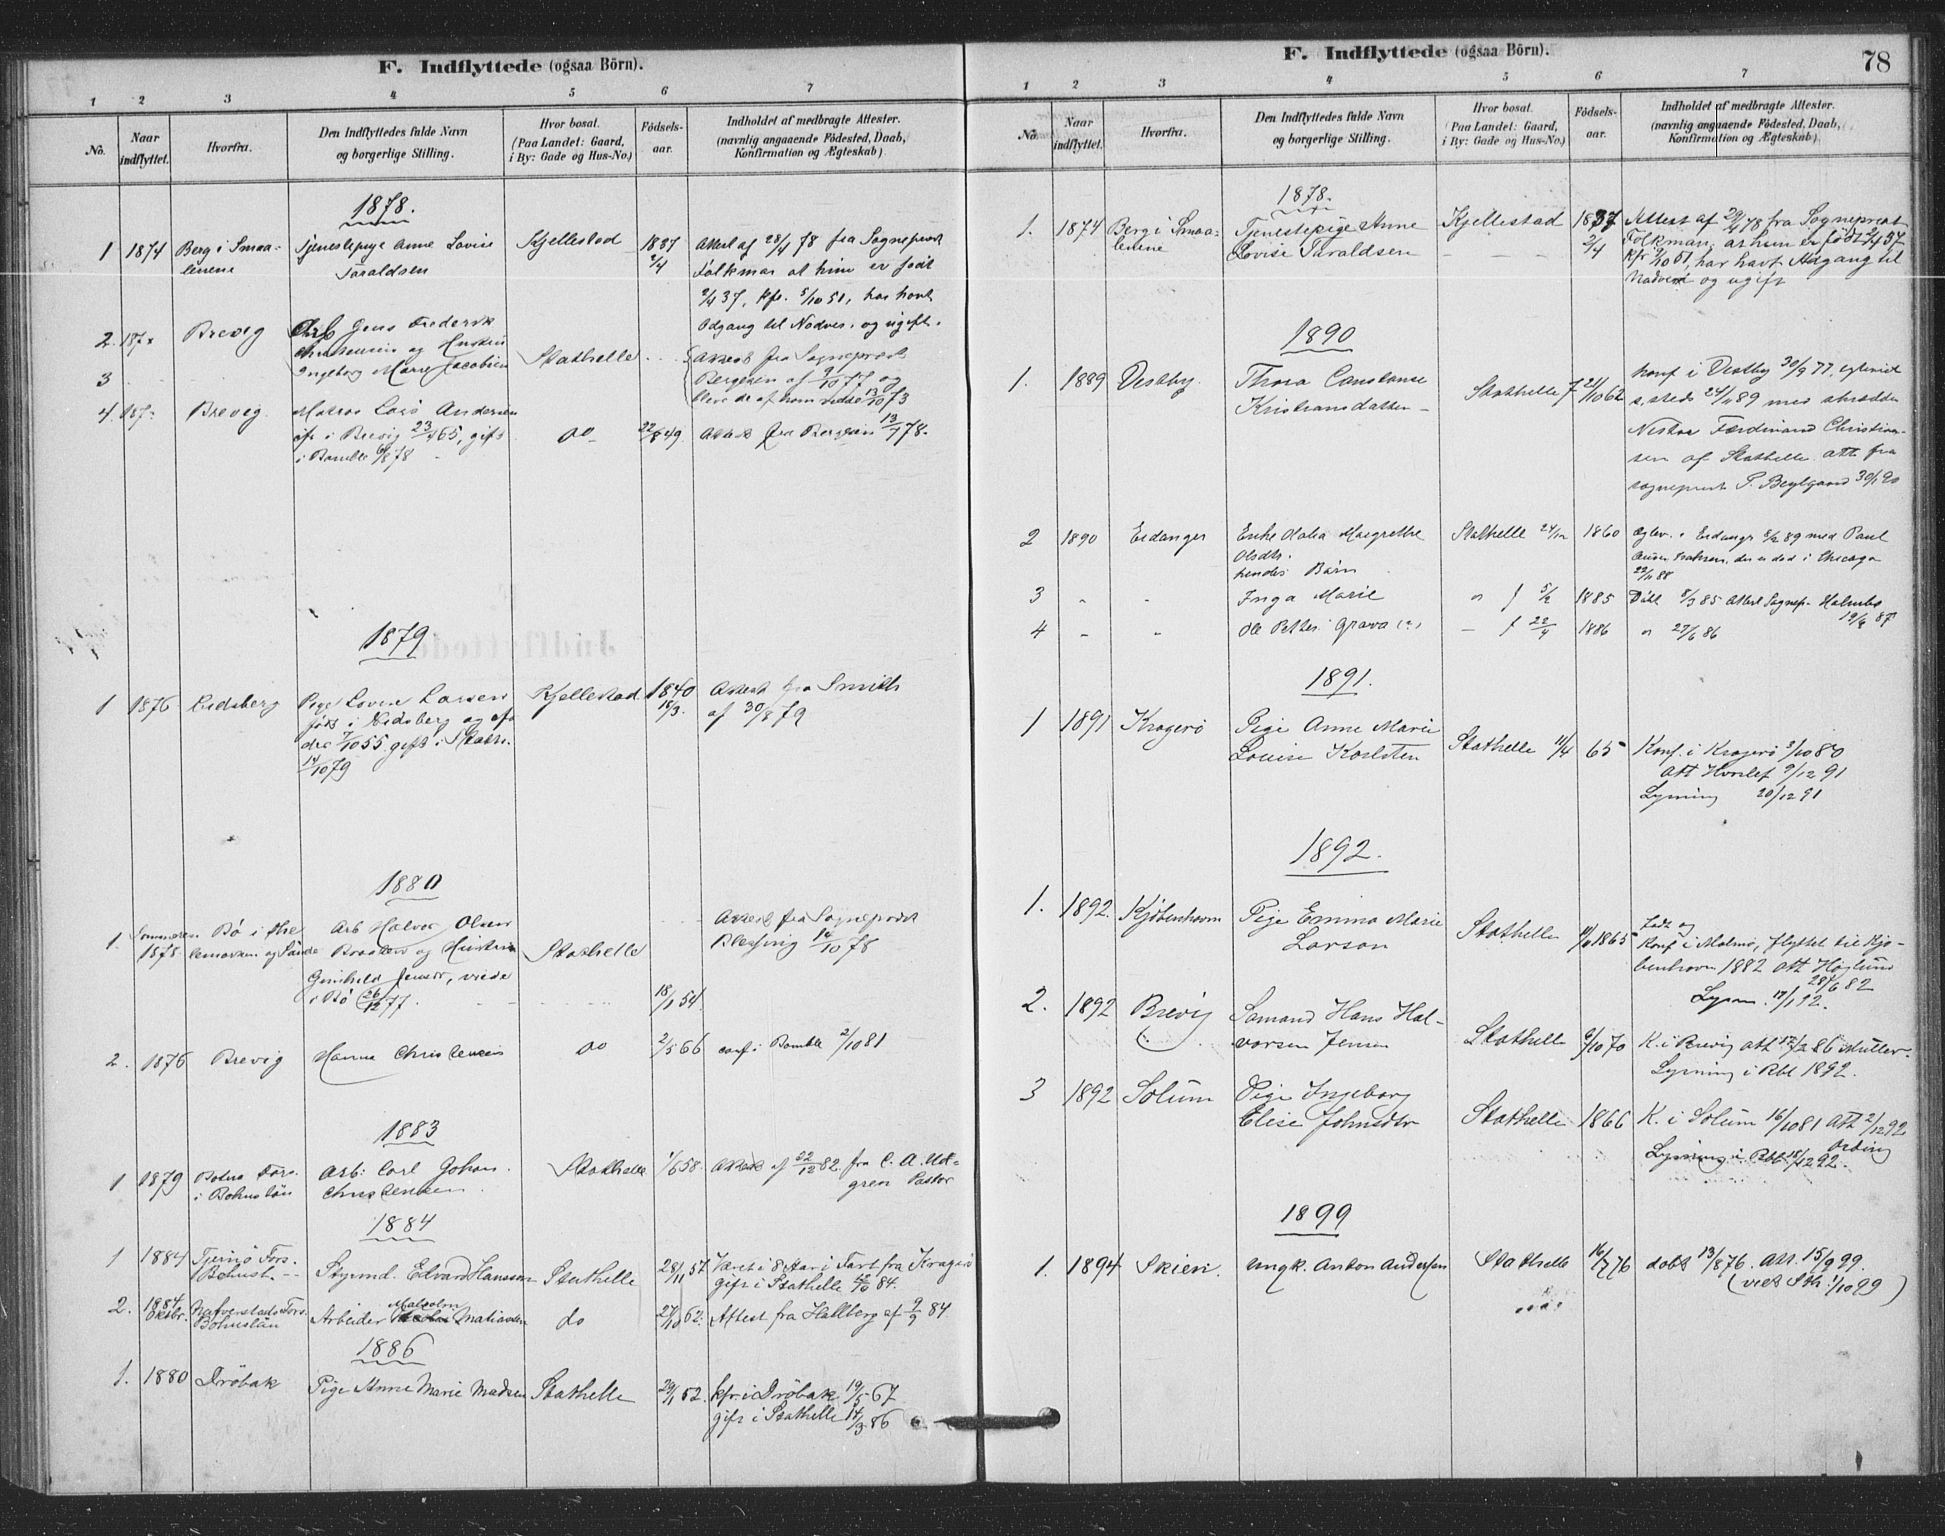 F. Indflyttede (ogsaa Börn).
1 2 3 4 5 6 7
No. Naar indflyttet. Hvorfra. Den Indflyttedes fulde Navn og borgerlige Stilling. Hvor bosat. (Paa Landet: Gaard, i By: Gade og Hus-No.) Födsels-aar. Indholdet af medbragte Attester. (navnlig angaaende Födested, Daab, Konfirmation og Ægteskab)
1878.
1 1874 Berg i Smaa- Tjenestepige Anne Lovise Kjellestad 1837 Attest af 28/4 78 fra Sogneprest
lenene Taraldsen 2/4 Folkman at hun er født
2/4 37, kfr. 5/10 51, har havt
Adgang til Nadver. og ugift.
2. 187 Brevig Arb Jens Frederik
og Hustru Stathelle Attest fra Sogneprest
3 Ingeborg Marie Jacobsen Bergesen af 9/10 77 og
13/10 73
4 187 Brevig. Matros Lars Andersen
i Brevig 23/4 65, gift do 22/8 49. Attest fra Bergesen 13/1 78.
i Bamble 6/8 78
1879
1 1876 Eidsberg Pige Lovise Larsen Kjellestad 1840 Attest fra Smith
født i Eidsberg og 18/3. af 30/8 79
7/10 55 gift i Stath.
14/10 79
1880
1. Sommeren Bø i Thele- Arb Halvor Olsen Attest fra Sogneprest
1878 marken og Braaten og Hustru Stathelle Blessing 14/10 78
Gunhild Jensen, viede
i Bø 26/12 77. 18/1 54
2. 1876 Brevig Hanna Christensen do 2/5 66 conf i Bamble 2/10 81
1883
1 1879 Fors. Arb: Carl Johan Stathelle 1/6 58 Attest af 22/12 82 fra C. A.
i Bohuslän Christensen gren Pastor
1884
1 1884 Tjernö Fors. Styrmd. Edvard Hansson Stathelle 28/11 57 Været i 8 Aar i Fart fra Kragerø
Bohusl. gift i Stathelle 84.
2. 1884 Naverstads Fors. Arbeider Malcolm Matiasen do 27/10 62. Attest fra Hallberg af 9/9 84
Oktbr. Bohuslän
1886
1. 1880 Drøbak Pige Anne Marie Madsen Stathelle 29/1 52. kfr. i Drøbak 19/5 67
gift i Stathelle 14/3 86
F. Indflyttede (ogsaa Börn).
78
1 2 3 4 5 6 7
No. Naar indflyttet. Hvorfra. Den Indflyttedes fulde Navn og borgerlige Stilling. Hvor bosat. (Paa Landet: Gaard, i By: Gade og Hus-No.) Födsels-aar. Indholdet af medbragte Attester. (navnlig angaaende Födested, Daab, Konfirmation og Ægteskab)
1878.
1. 1874 Berg i Smaa- Tjenestepige Anne Kjellestad 1837 Attest af 28/4 78 fra Sogneprest
lenene Lovise Taraldsen 2/4 Folkman, at hun er født 2/4 37
kfr 5/10 51, har havt Adgang til
Nadver og ugift
1890
1. 1889 Vestby. Thora Constance Stathelle 21/10 62 konf i Vestby 30/9 77, egteviet
Kristiansdatter s. steds 24/11 89 med
Ferdinand Christian-
sen af Stathelle att fra
sogneprest P. 30/1 90
2 1890 Eidanger Enke Maria Margrethe Stathelle 24/12 1860 Egtev. i Eidanger 89 med Paul
Olsdtr. der er død i Chicago
hendes Børn 22/11 88
3 - - Inga Marie " f 5/2 1885 Døbt 8/3 85 Attest Sognep. Holmbo
4 - - Ole Petter Grava (?) - f 22/4 1886 " 27/6 86 19/8 87
1891.
1 1891 Kragerø Pige Anne Marie
Louise Karlsten Stathelle 11/4 65 Konf. i Kragerø 3/10 80
att Horslef 9/12 91
Lysning 20/12 91
1892.
1. 1892. Kjøbenhavn Pige Emma Marie Stathelle 1865 Født og
Larson Konf i Malmö, flyttet til Kjø-
benhavn 1882 att Höglund
28/6 82
Lysn. 17/1 92.
2. 1892 Brevig Sømand Hans Hal- Stathelle 6/10 70 K. i Brevig att 17/2 86 Müller.
vorsen Jensen Lysning i Rbl 1892.
3 1892 Solum Pige Ingeborg
Elise Johnsdtr Stathelle 1866 K. i Solum 16/10 81 Att 2/12 92
Lysning i Rbl 18/12 92.
1899
1. 1894 Skien. ungk. Anton Andersen Stathelle 16/7 76 døbt 13/8 76. Att. 15/9 99.
(viet Sth. 1/10 99)